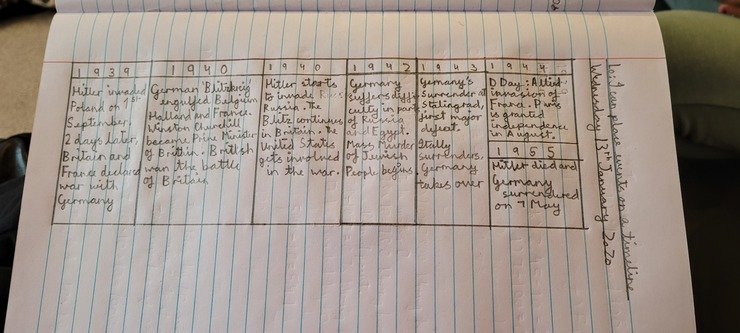 Wednesday 13th January 2020
I can place events on a timeline
1939
Hitler invaded
Poland on 1st
September.
2 days later,
Britain and
France declared
war with
Germany
1940
German 'Blitzkrieg'
engulfed Belgium
Holland and France.
Winston Churchill
became Prime Minister
of Brittain. British
won the battle
of Britain
1940
Hitler starts
to invade
Russia. The
Blitz continues
in Britain. The
United States
gets involved
in the war.
1942
Germany
suffers diffi-
culty in parts
of Russia
and Egypt.
Mass Murder
of Jewish
People begins.
1943
Germany's
surrender at
Stalingrad,
first major
defeat.
Itally
surrenders,
Germany
takes over
1944
D Day: Allied
invasion of
France. Paris
is granted
independence
in August.
1955
Hitler died and
Germany
surrendered
on 7 May